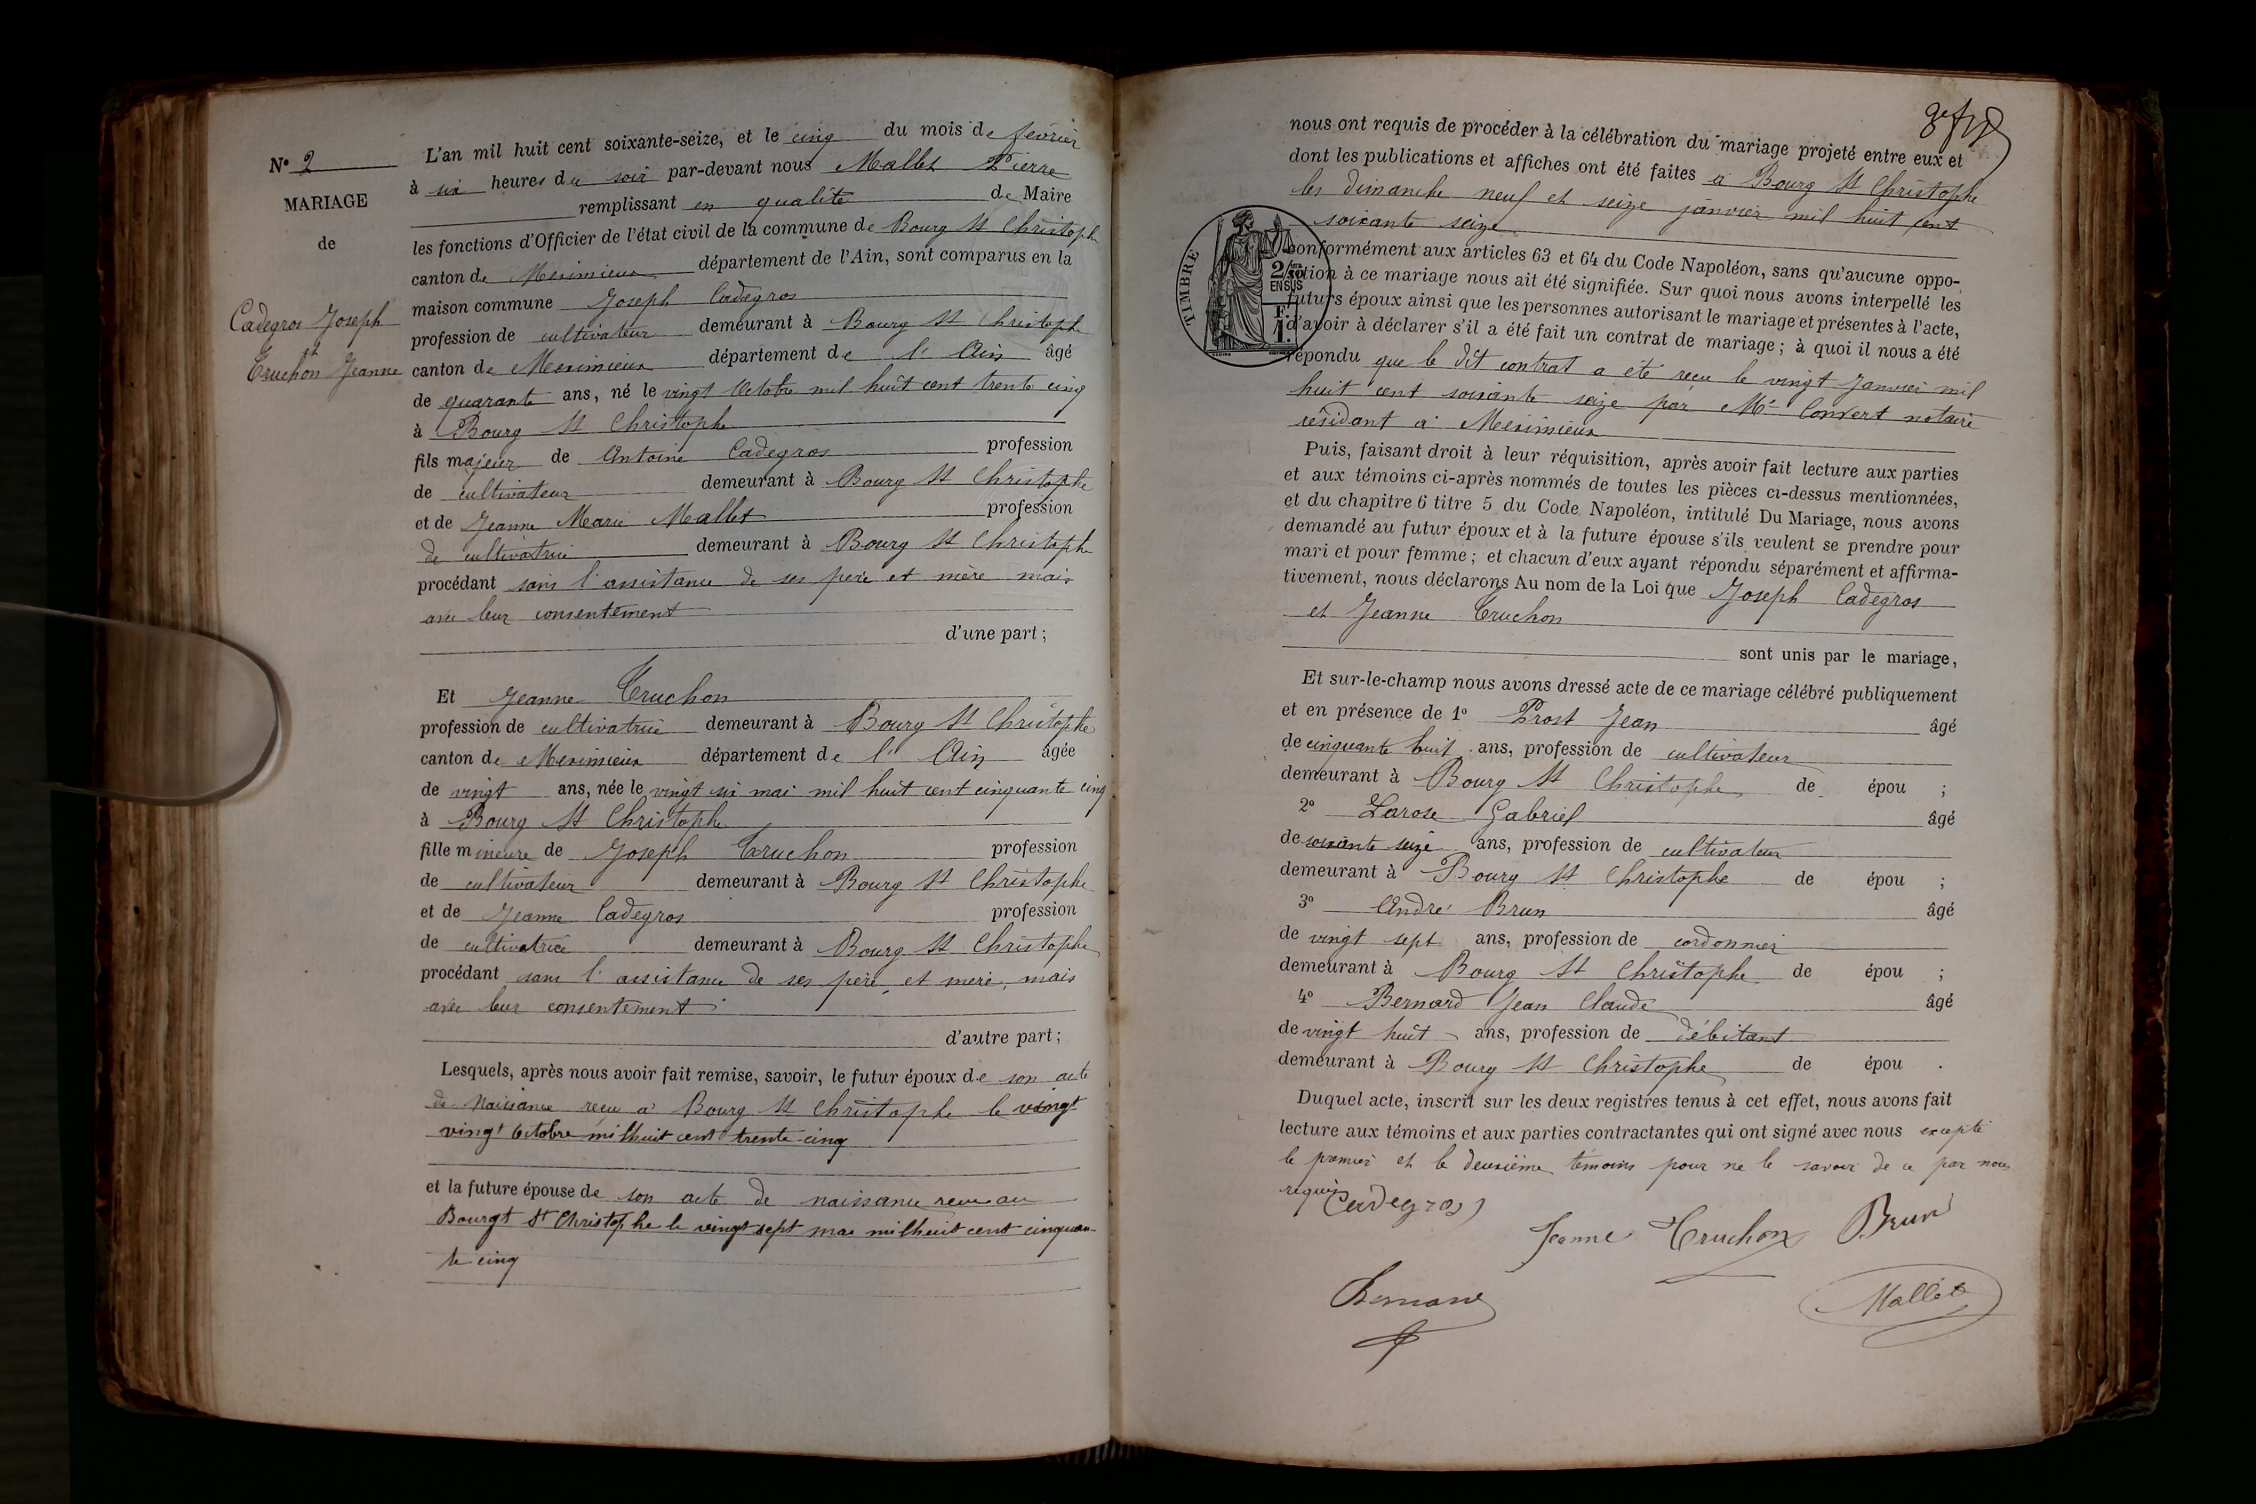 N° 2
MARIAGE
de
Cadegros Joseph
et
Truchon Jeanne
L'an mil huit cent soixante-seize, et le cinq du mois de février
à six heures du soir par-devant nous Mallet Pierre
remplissant en qualité de Maire
les fonctions d'Officier de l'état civil de la commune de Bourg St Christophe
canton de Meximieux département de l'Ain, sont comparus en la
maison commune Joseph Cadegros
profession de cultivateur demeurant à Bourg St Christophe
canton de Meximieux département de l'Ain âgé
de quarante ans, né le vingt Octobre mil huit cent trente cinq
à Bourg St Christophe
fils majeur de Antoine Cadegros profession
de cultivateur demeurant à Bourg St Christophe
et de Jeanne Marie Mallet profession
de cultivatrice demeurant à Bourg St Christophe
procédant sans l'assistance de ses père et mère mais
avec leur consentement
d'une part ;
Et Jeanne Truchon
profession de cultivatrice demeurant à Bourg St Christophe
canton de Meximieux département de l'Ain âgée
de vingt ans, née le vingt six mai mil huit cent cinquante cinq
à Bourg St Christophe
fille mineure de Joseph Truchon profession
de cultivateur demeurant à Bourg St Christophe
et de Jeanne Cadegros profession
de cultivatrice demeurant à Bourg St Christophe
procédant sans l'assistance de ses père et mère, mais
avec leur consentement
d'autre part ;
Lesquels, après nous avoir fait remise, savoir, le futur époux de son acte
de Naissance reçu à Bourg St Christophe le vingt
vingt Octobre mil huit cent trente cinq
et la future épouse de son acte de naissance reçu au
Bourgt St Christophe le vingt sept mai mil huit cent cinquan-
te cinq
nous ont requis de procéder à la célébration du mariage projeté entre eux et
dont les publications et affiches ont été faites à Bourg St Christophe
les dimanche neuf et seize janvier mil huit cent
soixante seize
conformément aux articles 63 et 64 du Code Napoléon, sans qu'aucune oppo-
sition à ce mariage nous ait été signifiée. Sur quoi nous avons interpellé les
futurs époux ainsi que les personnes autorisant le mariage et présentes à l'acte,
d'avoir à déclarer s'il a été fait un contrat de mariage ; à quoi il nous a été
répondu que le dit contrat a été reçu le vingt Janvier mil
huit cent soixante seize par Me Convert notaire
résidant à Meximieux
TIMBRE
2/10mes
EN SUS
F.
1.
Puis, faisant droit à leur réquisition, après avoir fait lecture aux parties
et aux témoins ci-après nommés de toutes les pièces ci-dessus mentionnées,
et du chapitre 6 titre 5 du Code Napoléon, intitulé Du Mariage, nous avons
demandé au futur époux et à la future épouse s'ils veulent se prendre pour
mari et pour femme ; et chacun d'eux ayant répondu séparément et affirma-
tivement, nous déclarons Au nom de la Loi que Joseph Cadegros
et Jeanne Truchon
sont unis par le mariage,
Et sur-le-champ nous avons dressé acte de ce mariage célébré publiquement
et en présence de 1° Prost Jean âgé
de cinquante huit ans, profession de cultivateur
demeurant à Bourg St Christophe de épou ;
2° Larose Gabriel âgé
de soixante seize ans, profession de cultivateur
demeurant à Bourg St Christophe de épou ;
3° André Brun âgé
de vingt sept ans, profession de cordonnier
demeurant à Bourg St Christophe de épou ;
4° Bernard Jean Claude âgé
de vingt huit ans, profession de débitant
demeurant à Bourg St Christophe de épou .
Duquel acte, inscrit sur les deux registres tenus à cet effet, nous avons fait
lecture aux témoins et aux parties contractantes qui ont signé avec nous excepté
le premier et le deuxième témoins pour ne le savoir de ce par nous
requis
Cadegros
Jeanne Truchon
Brun
Bernard
Mallet